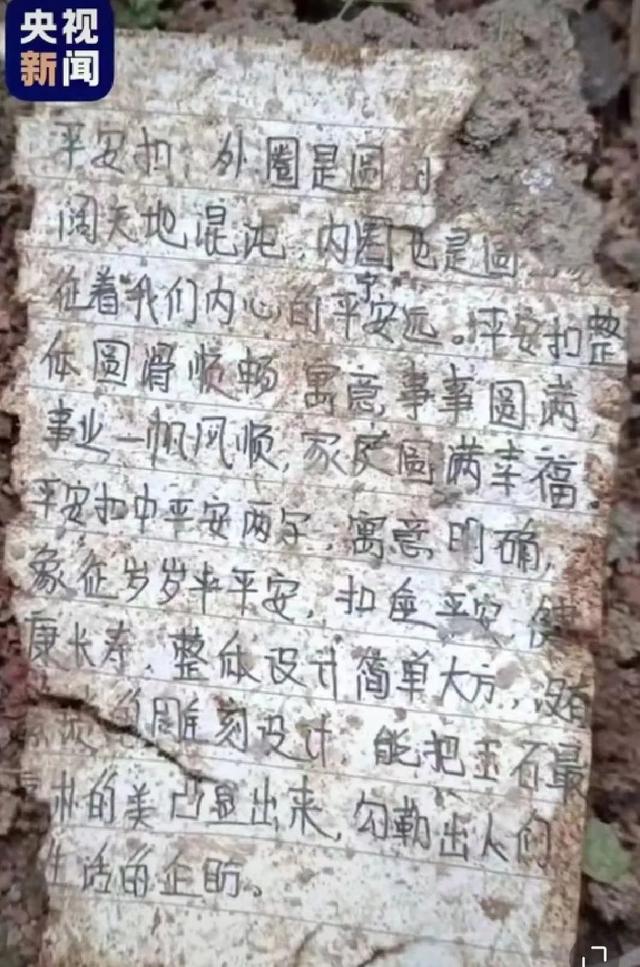 央视
新闻
平安扣,外圈是圆
阔天地混沌,内圈也是圆
征着我们内心的平安宁远。平安扣整
体圆滑顺畅 寓意事事圆满,
事业一帆风顺,家庭圆满幸福.
平安扣中平安两字,寓意明确,
象征岁岁平安,扣 平安,健
康长寿.整体设计简单大方,没有
雕刻设计,能把玉石最
的美凸显出来,勾勒出人们
生活的企盼。